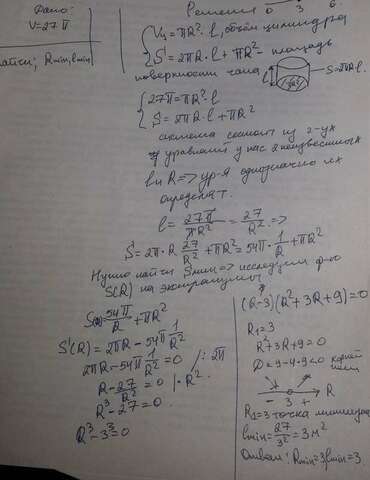 Дано:
V=27π
Найти: Rmin, lmin
Решение
0 3 6
{ Vц = πR²·l, объём цилиндра
S = 2πR·l + πR² площадь
поверхности чана
S=2πR·l
{ 27π = πR²·l
S = 2πR·l + πR²
система состоит из 2-ух
уравнений у нас 2 неизвестных
l и R => ур-я однозначно их
определят.
l = 27π/πR² = 27/R² =>
S = 2π·R 27/R² + πR² = 54π·1/R + πR²
Нужно найти Sмин => исследуем ф-ю
S(R) на экстремумы
S(R) = 54π/R + πR²
S'(R) = 2πR - 54π 1/R²
2πR - 54π 1/R² = 0 /: 2π
R - 27/R² = 0 | · R²
R³ - 27 = 0
R³ - 3³ = 0
(R-3)(R²+3R+9)=0
R₁=3
R²+3R+9=0
D=9-4·9<0 корней
нет
- + R
3
R₁=3 точка минимума
lmin = 27/3² = 3 м²
Ответ: Rmin=3, lmin=3